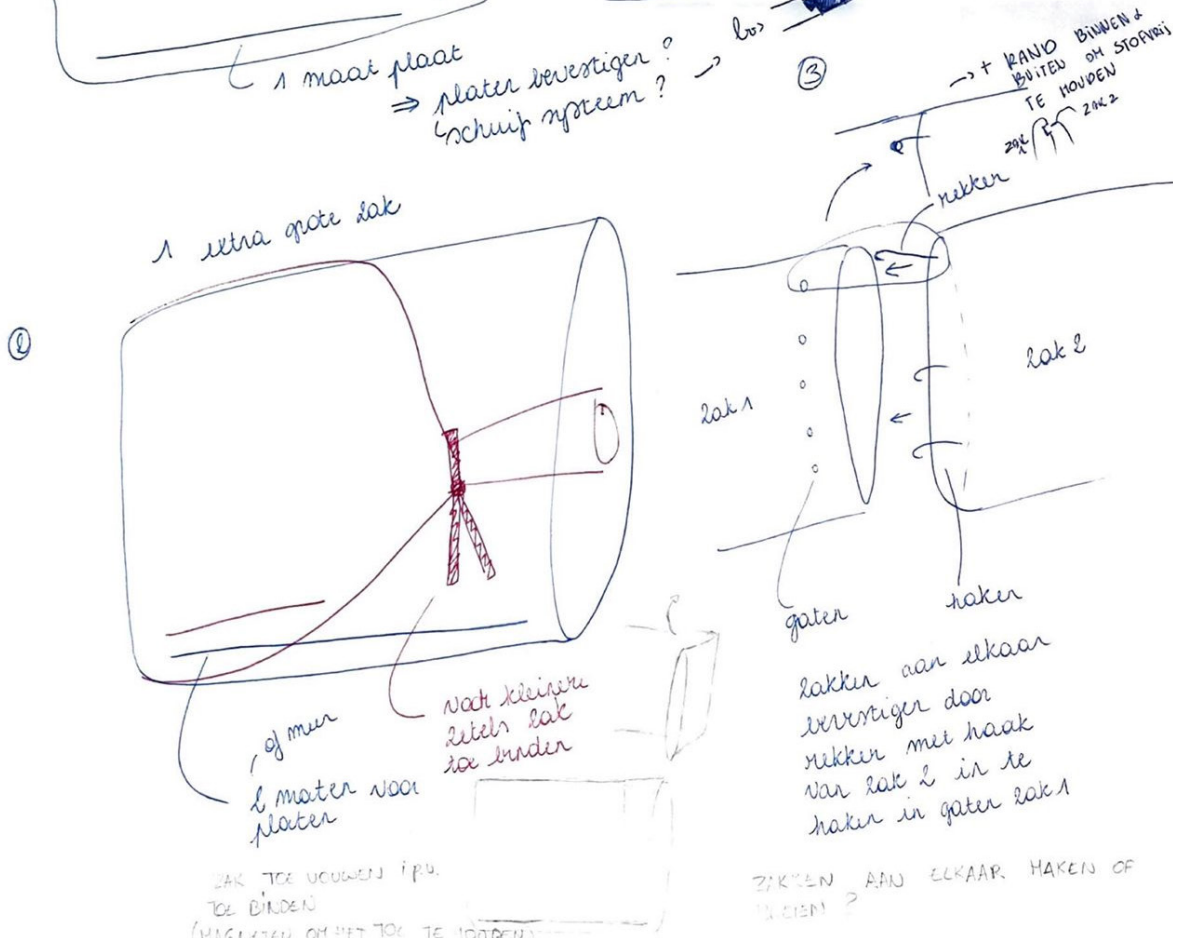 1 maat plaat
⇒ platen bevestigen?
↳ schuif systeem? → los
③
→ + RAND BINNEN &
BUITEN OM STOFVRIJ
TE HOUDEN
zak 1
ZAK 2
rekker
②
1 extra grote zak
zak 1
zak 2
gaten
haken
zakken aan elkaar
bevestigen door
rekker met haak
van zak 2 in te
haken in gaten zak 1
voor kleinere
zetels zak
toe binden
, of meer
2 maten voor
platen
ZAK TOE VOUWEN i.p.v.
TOE BINDEN
(MAGNETEN OM HET TOE TE HOUDEN)
ZAKKEN AAN ELKAAR MAKEN OF
?